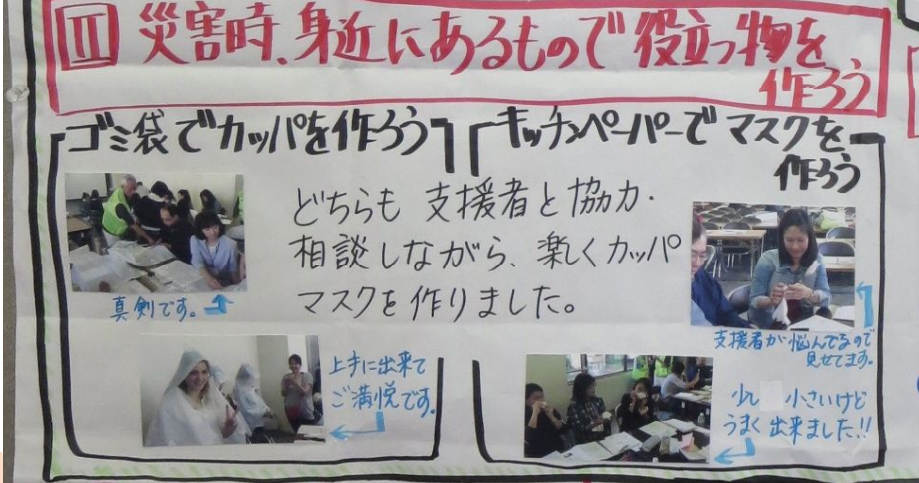 II 災害時、身近にあるもので役立つ物を
作ろう
ゴミ袋でカッパを作ろう
キッチンペーパーでマスクを
作ろう
どちらも支援者と協力・
相談しながら、楽しくカッパ
マスクを作りました。
真剣です。
支援者が悩んでるので
見せてます。
上手に出来て
ご満悦です。
少し 小さいけど
うまく出来ました!!